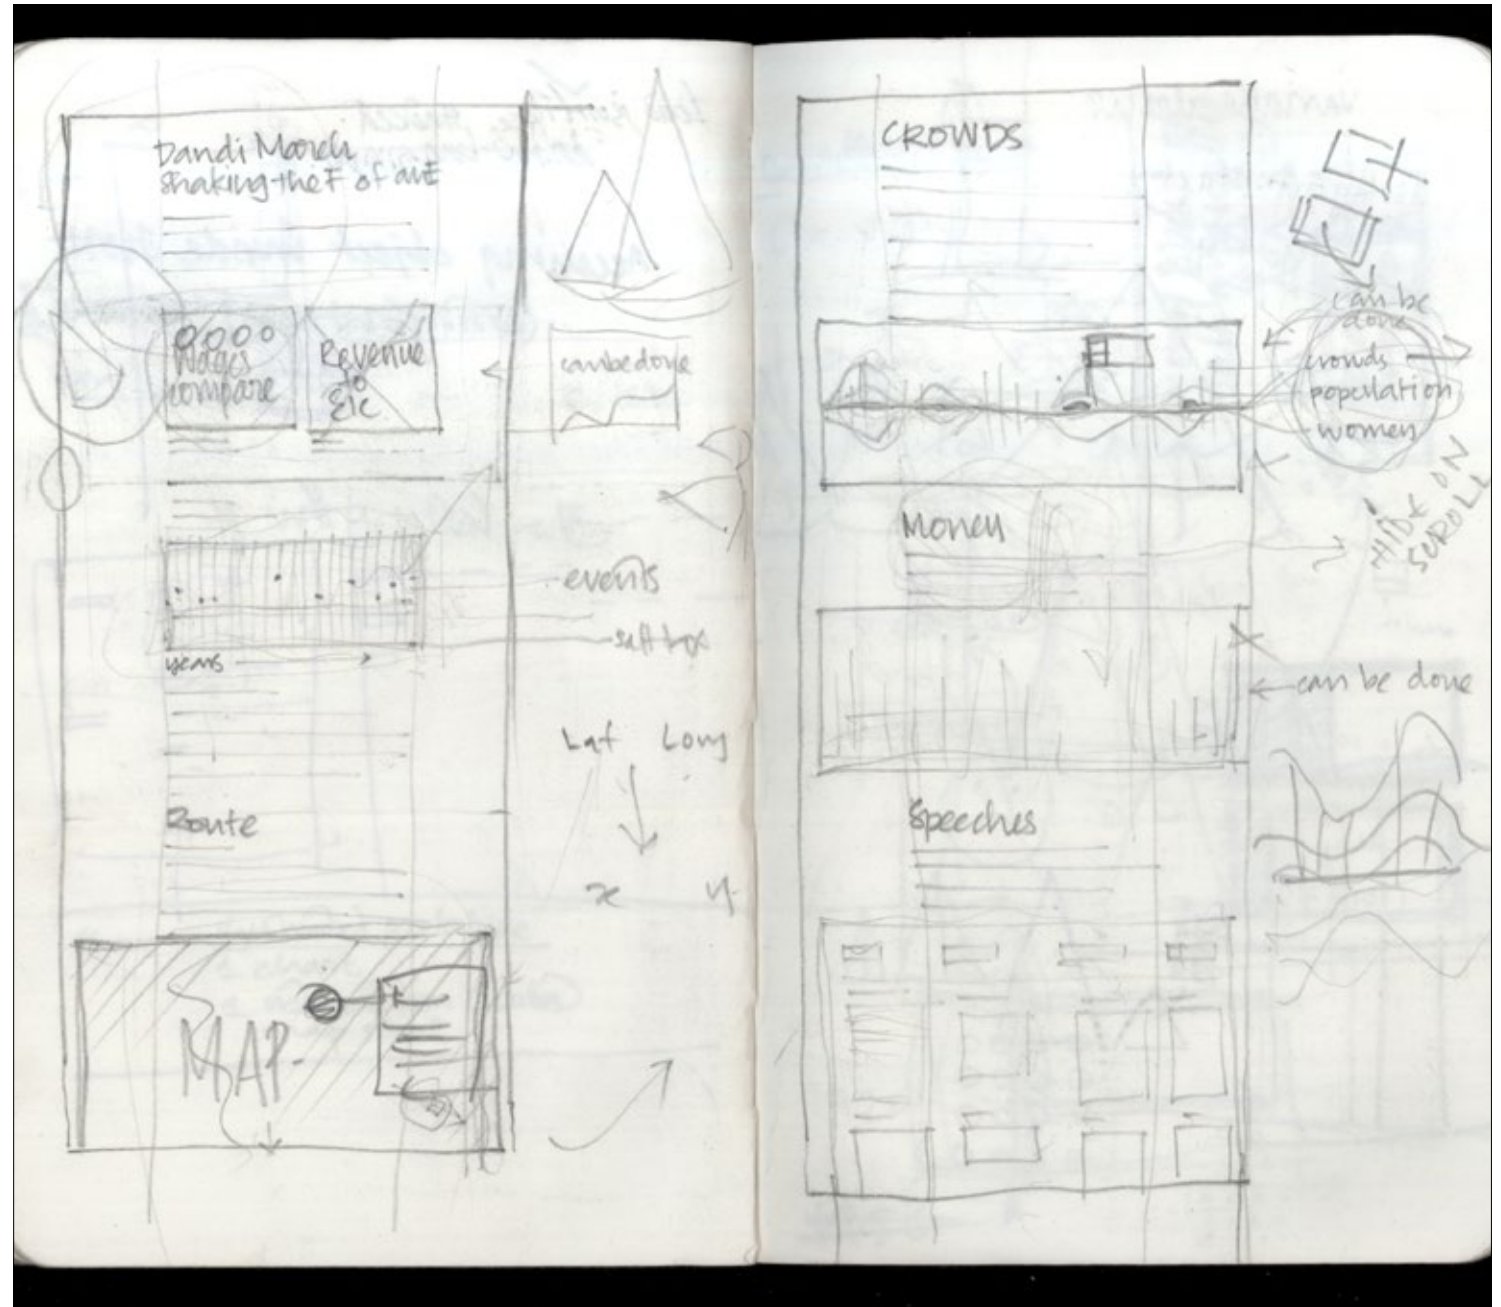 Dandi March
Shaking the F of an E
Wages
compare
Revenue
to
EIC
can be done
events
salt tax
years
Lat Long
Route
x y
MAP
CROWDS
can be
done
crowds
population
women
HIDE ON
SCROLL
Money
can be done
Speeches